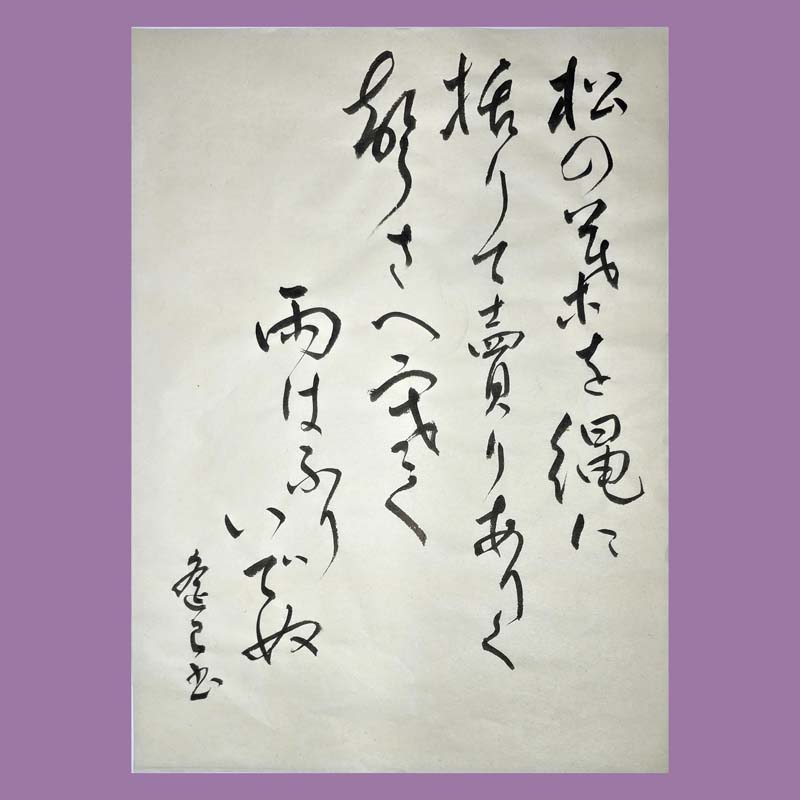 松の葉を縄に
括りて賣りありく
聲さへ寒く
雨はふり
いで奴